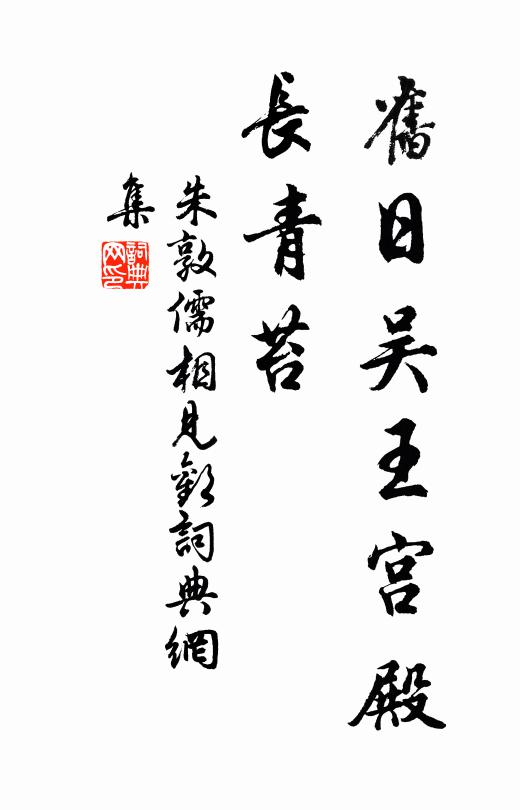 舊日吴王宫殿
長青苔
朱敦儒相見歡詞典網
集
詞典網印